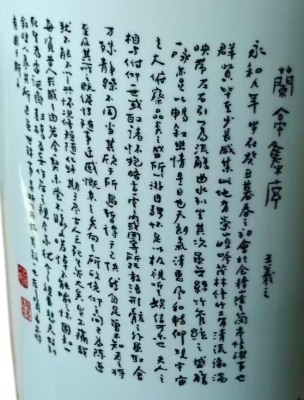 蘭亭集序
王羲之
永和九年岁在癸丑暮春之初會於會稽山陰之蘭亭修禊事也
群賢畢至少長咸集此地有崇嶺峻山茂林修竹又有清流激湍
映帶左右引以為流觴曲水列坐其次雖無絲竹管弦之盛一觴
一詠亦足以暢敘幽情是日也天朗氣清惠風和暢仰觀宇宙
之大俯察品類之盛所以游目騁懷足以極視聽之娛信可樂也夫人之
相與俯仰一世或取諸懷抱晤言一室之內或因寄所託放浪形骸之外雖取舍
萬殊靜躁不同當其欣於所遇暫得於己快然自足不知老之將
至及其所之既倦情隨事遷感慨係之矣向之所欣俯仰之間已為陳跡
猶不能不以之興懷況修短隨化終期於盡古人云死生亦大矣豈不痛哉
每覽昔人興感之由若合一契未嘗不臨文嗟悼不能喻之於懷固知一
死生為虛誕齊彭殤為妄作後之視今亦猶今之視昔悲夫故列
敘時人錄其所述
有感於斯文